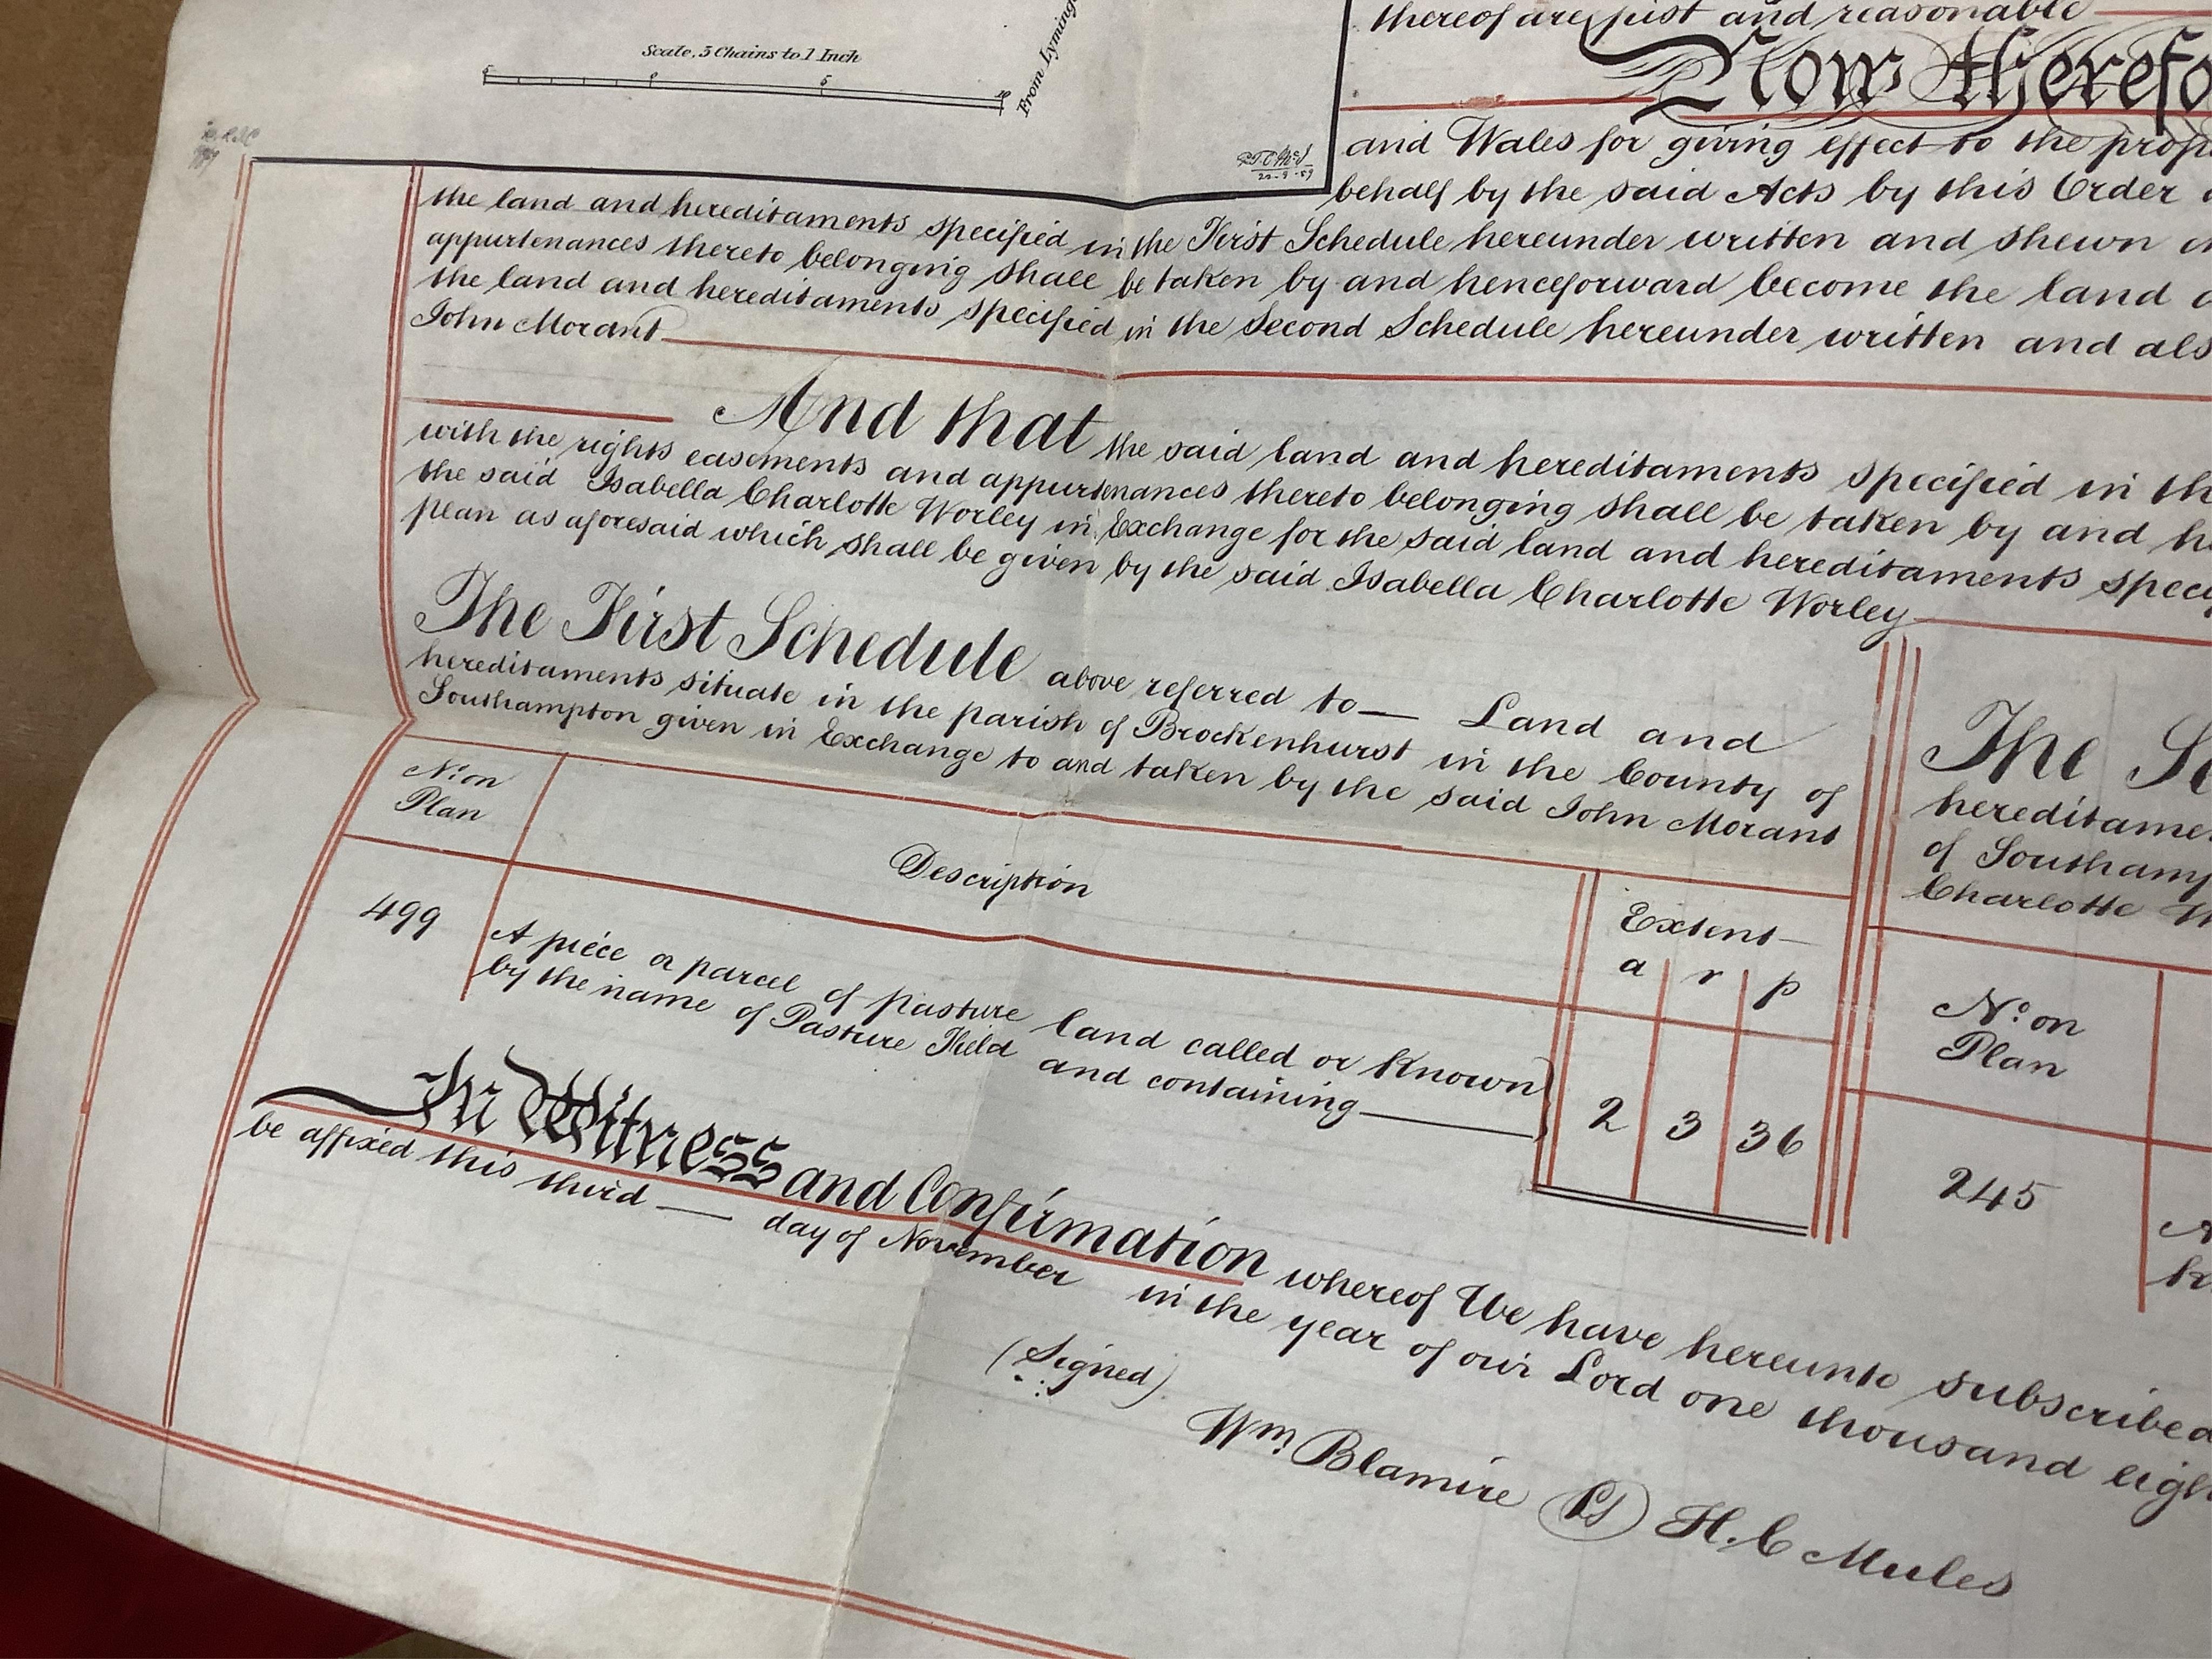 Scale, 3 Chains to 1 Inch
5 0 5 10
From Lyming
thereof are just and reasonable
Now therefo
and Wales for giving effect to the prop
behalf by the said Acts by this Order
the land and hereditaments specified in the First Schedule hereunder written and shewn
appurtenances thereto belonging shall be taken by and henceforward become the land
the land and hereditaments specified in the Second Schedule hereunder written and als
John Morant
And that the said land and hereditaments specified in th
with the rights easements and appurtenances thereto belonging shall be taken by and h
the said Isabella Charlotte Worley in Exchange for the said land and hereditaments spec
plan as aforesaid which shall be given by the said Isabella Charlotte Worley
The First Schedule above referred to — Land and
hereditaments situate in the parish of Brockenhurst in the County of
Southampton given in Exchange to and taken by the said John Morant
No. on
Plan
Description
Extent
a r p
499
A piece or parcel of pasture land called or known
by the name of Pasture Field and containing
2 3 36
The S
hereditame
of Southam
Charlotte W
No. on
Plan
245
A
k
In Witness and Confirmation whereof We have hereunto subscribed
be affixed this third — day of November in the year of our Lord one thousand eigh
(Signed)
Wm Blamire LS H. C Mules